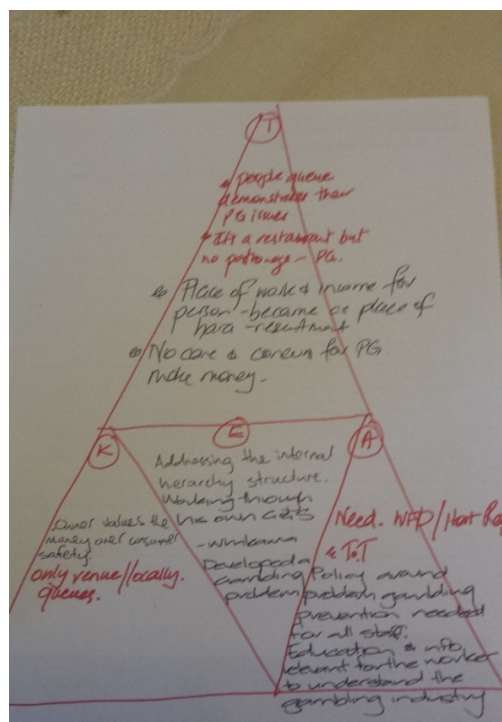 T
• people queue
demonstrates their
PG issues
• It's a restaurant but
no patronage - PG.
Place of work & income for
person - became a place of
hara - resentment
No care & concern for PG
make money.
K
E
A
Addressing the internal
hierarchy structure.
Working through
his own
- whakama
Developed a
gambling
problem
Owner values the
money over consumer
safety.
only venue/locally.
queues.
Need.
& T.o.T
Policy around
problem gambling
prevention needed
for all staff.
Education & info
relevant for the worker
to understand the
gambling industry